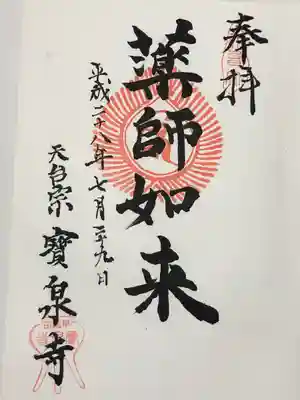 奉拝
薬師如来
平成二十八年七月二十九日
天台宗 寶泉寺